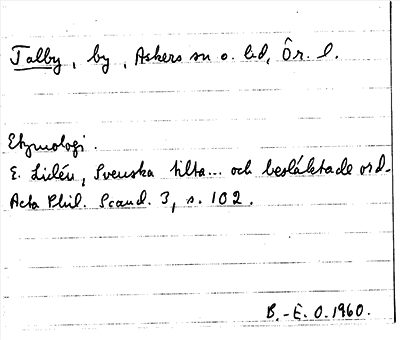 Talby, by, Askers sn o. hd, Ör. l.
Etymologi.
E. Lidén, Svenska tilta... och besläktade ord.
Acta Phil. Scand. 3, s. 102.
B.-E. O. 1960.